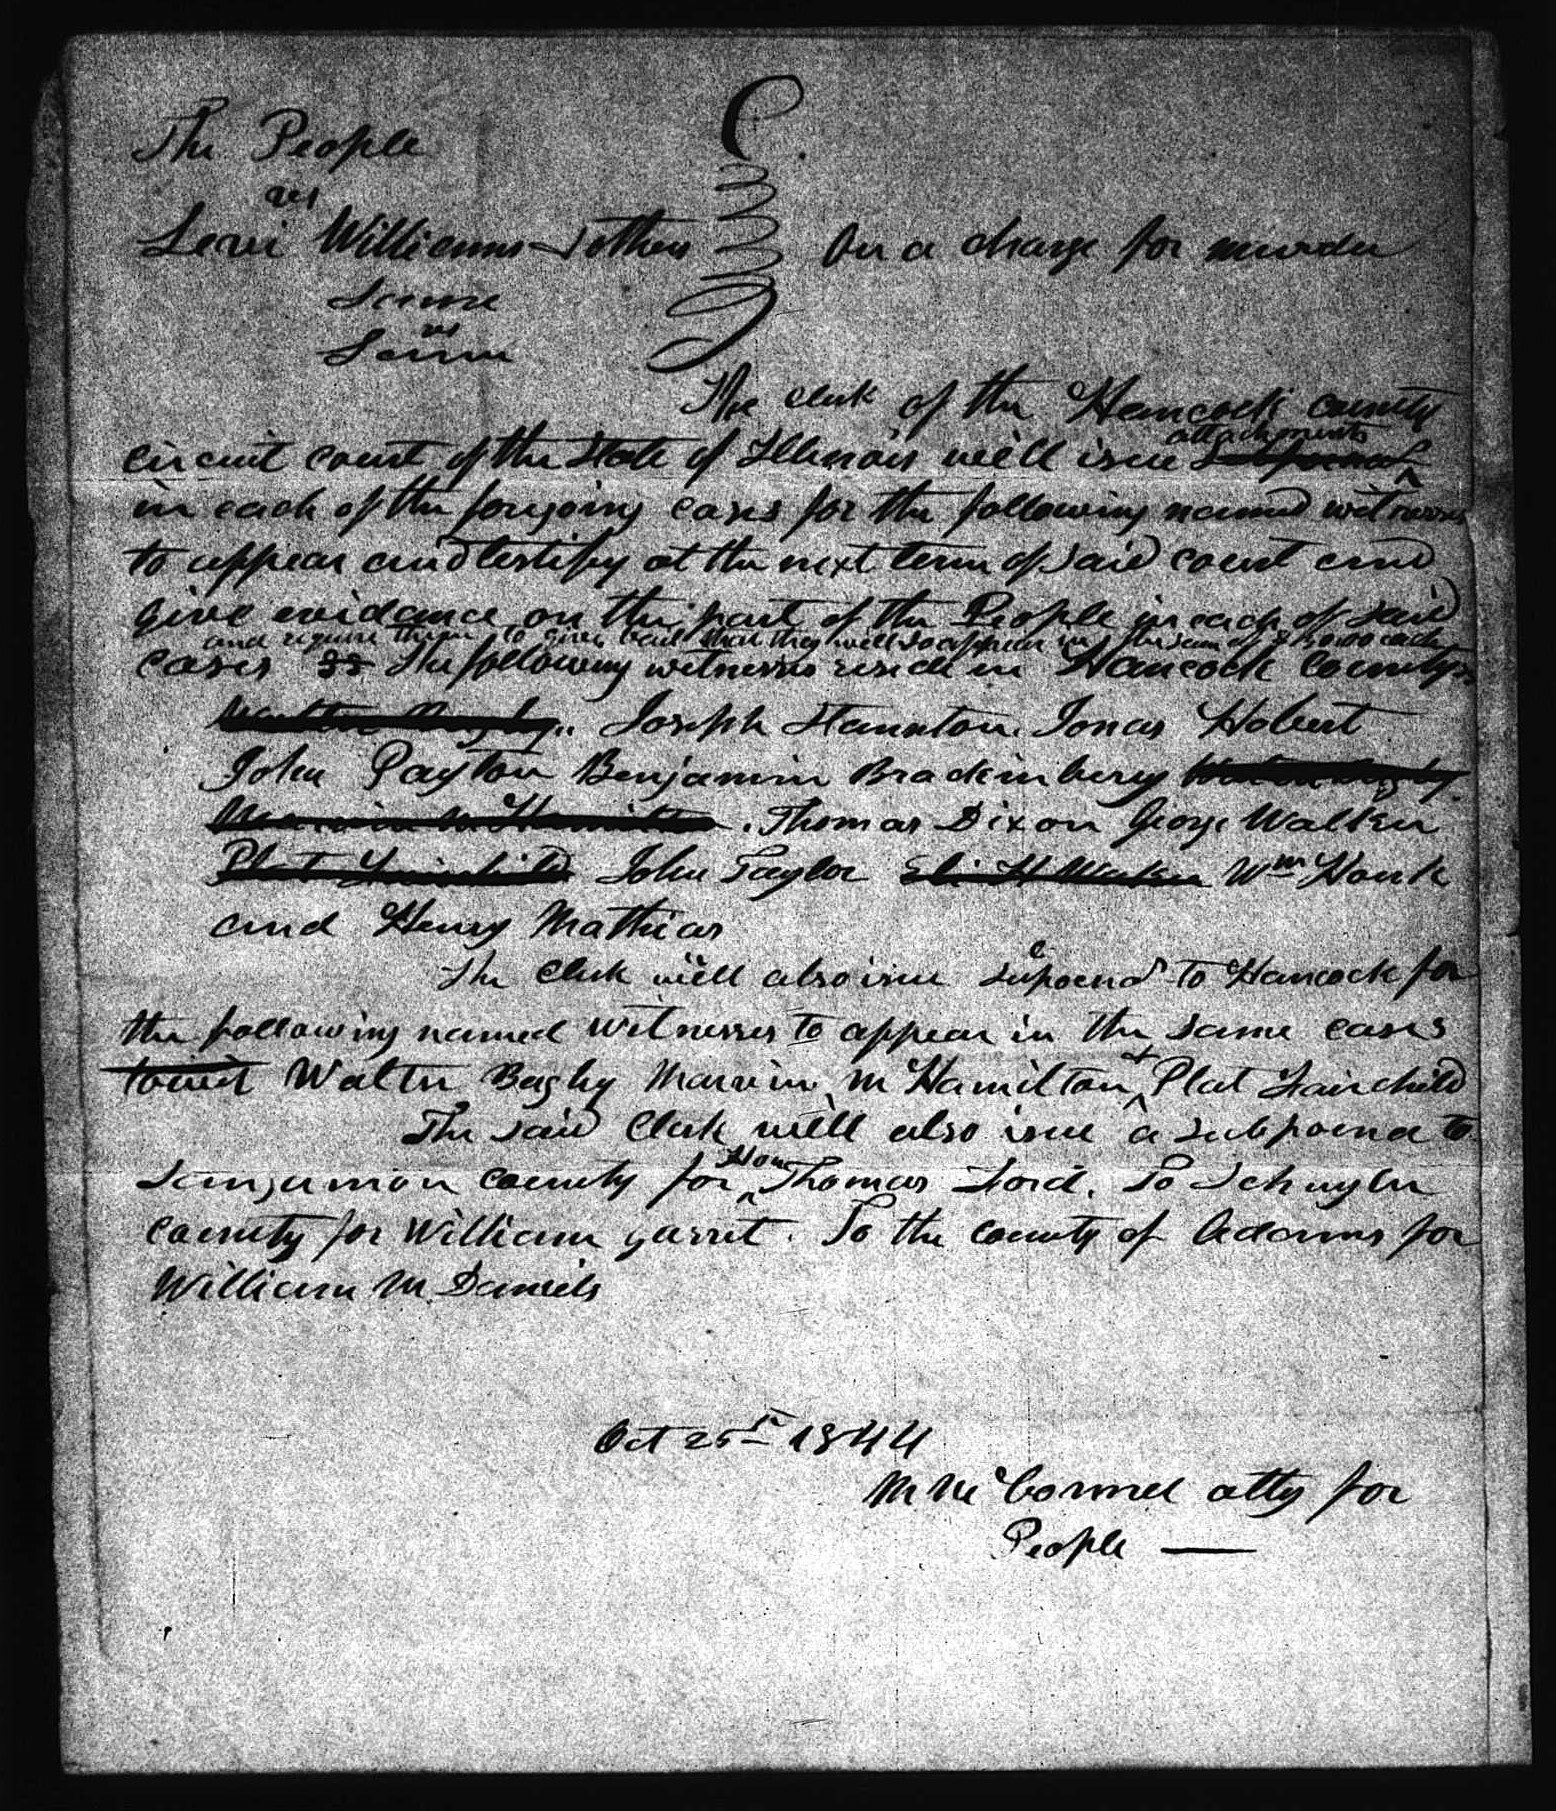 The People
vs
Levi Williams & others } On a charge for murder
Same
vs
Same
The clerk of the Hancock county
circuit court of the State of Illinois will issue Subpoenas attachments
in each of the forgoing cases for the following named witnesses
to appear and testify at the next term of said court and
give evidence on the part of the People in each of said
and require them to give bail that they will so appear in the sum of $ 500.00 each
cases The following witnesses reside in Hancock County
Walter Bagby Joseph Staunton Jonas Hobert
John Payton Benjamin Brackinbery Walter Bagby
Marvin M Hamilton Thomas Dixon George Walker
Plat Fairchild John Taylor Eli H Walker Wm Houk
and Henry Mathias
The Clerk will also issue supoena to Hancock for
the following named witnesses to appear in the same cases
towit Walter Bagby Marvin M Hamilton & Plat Fairchild
The said Clerk will also issue a subpoena to
Sangamon county for Hon Thomas Ford. To Schuyler
county for William garret. To the county of Adams for
William M Daniels
Oct 25th 1844
M McConnel atty for
People —